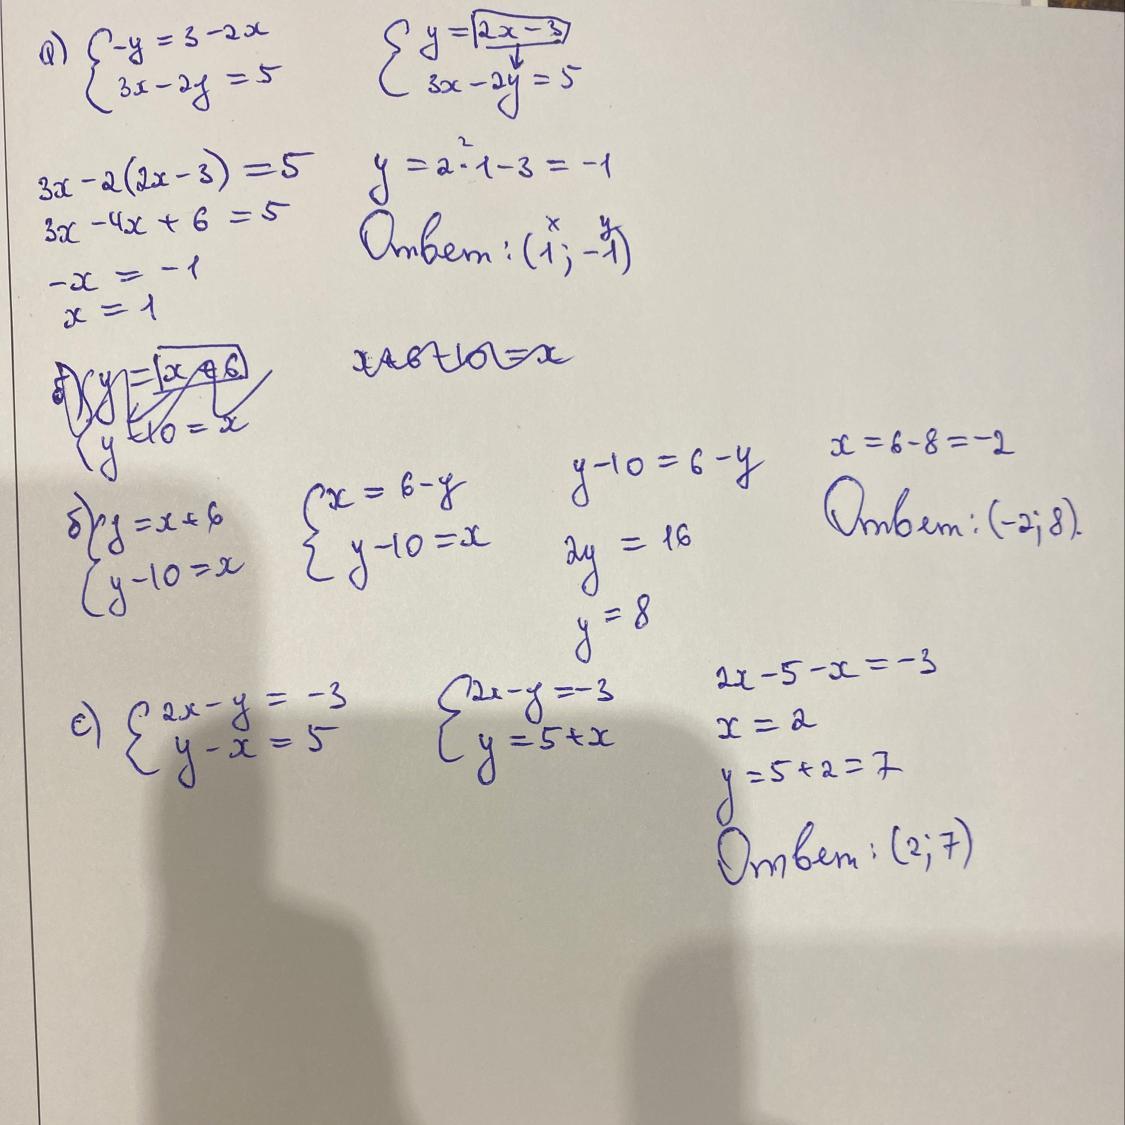 а) { -y = 3 - 2x
3x - 2y = 5
{ y = 2x - 3
3x - 2y = 5
3x - 2(2x - 3) = 5
3x - 4x + 6 = 5
-x = -1
x = 1
y = 2 · 1 - 3 = -1
2
x y
Ответ: (1; -1)
б) { y = x + 6
y - 10 = x
{ x = 6 - y
y - 10 = x
y - 10 = 6 - y
2y = 16
y = 8
x = 6 - 8 = -2
Ответ: (-2; 8).
c) { 2x - y = -3
y - x = 5
{ 2x - y = -3
y = 5 + x
2x - 5 - x = -3
x = 2
y = 5 + 2 = 7
Ответ: (2; 7)